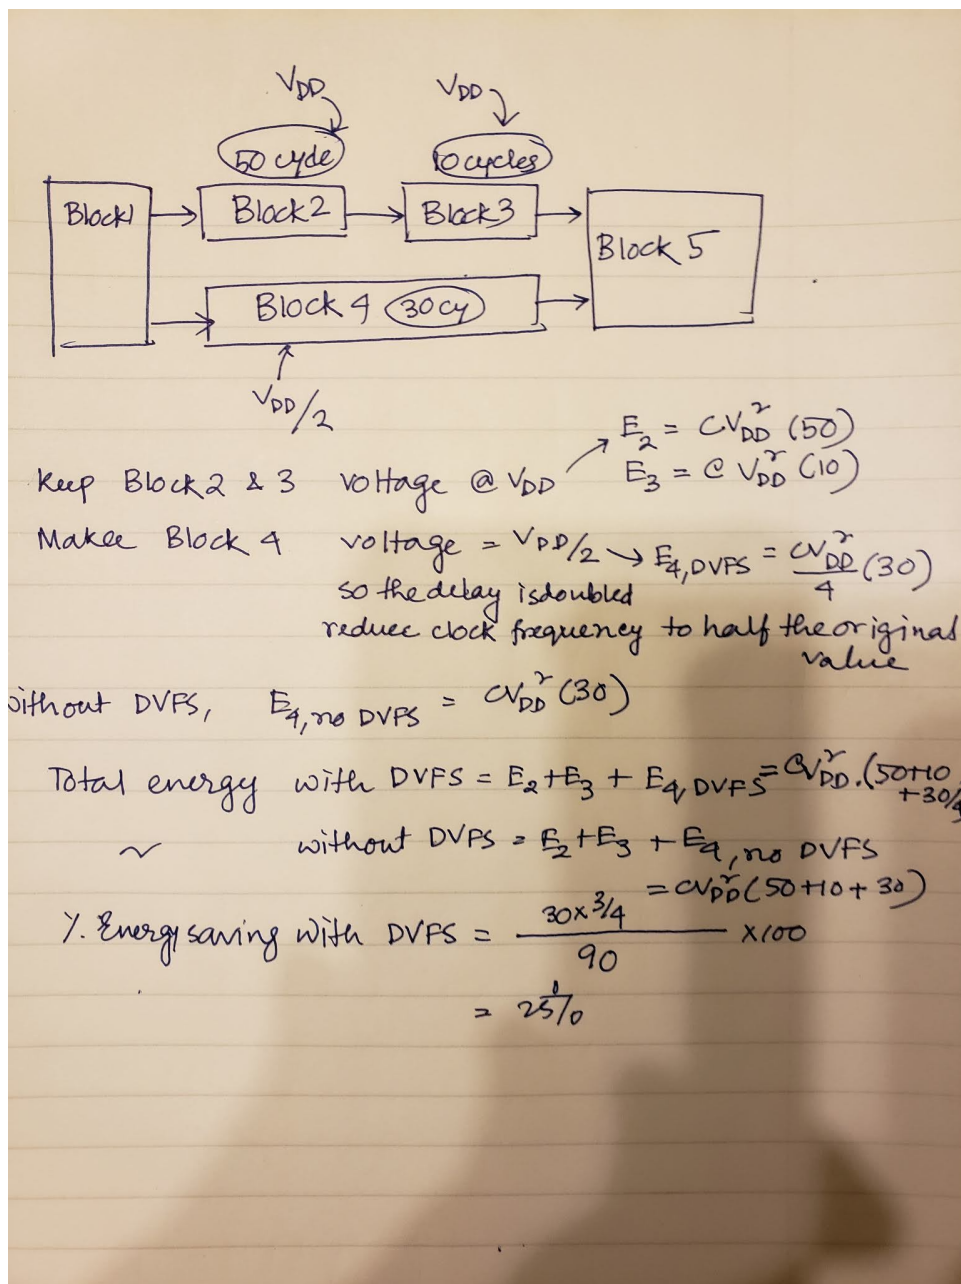 VDD VDD
50 cycle 10 cycles
Block1 Block2 Block3
Block 5
Block 4 30cy
VDD/2
E2 = CVDD² (50)
Keep Block2 & 3 voltage @ VDD E3 = C VDD² (10)
Makee Block 4 voltage = VDD/2 → E4,DVFS = CVDD²/4 (30)
so the delay is doubled
reduce clock frequency to half the original
value
without DVFS, E4,no DVFS = CVDD² (30)
Total energy with DVFS = E2+E3 + E4,DVFS = CVDD².(50+10
+30/4
~ without DVFS = E2+E3 + E4,no DVFS
= CVDD² (50+10+30)
% Energy saving with DVFS = 30x3/4 / 90 x100
= 25%